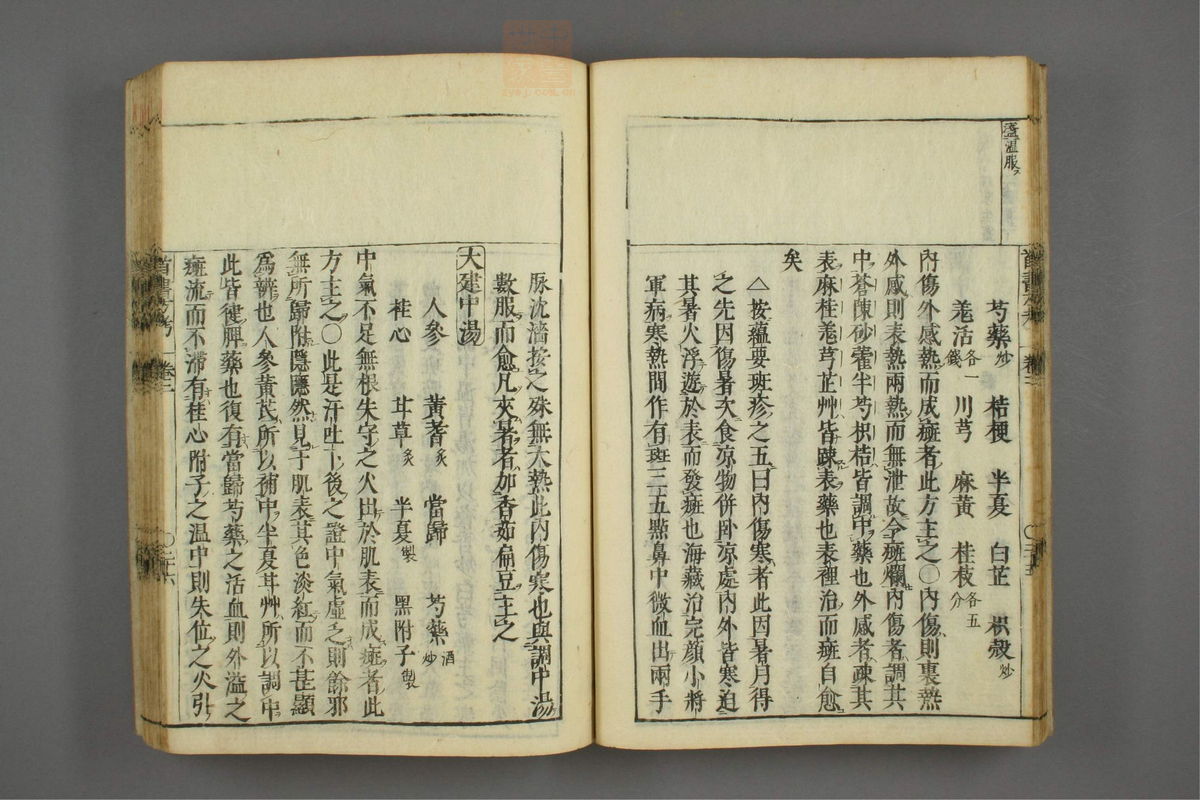 盞温服
芍藥炒 桔梗 半夏 白芷 枳殻炒
羗活各一錢 川芎 麻黃 桂枝各五分
內傷外感熱而成癍者此方主之○內傷則裏熱
外感則表熱兩熱而無泄故令癍爛內傷者調其
中蒼陳砂藿半芍枳桔皆調中藥也外感者疎其
表麻桂羗芎芷艸皆疎表藥也表裡治而癍自愈
矣
△按蘊要斑疹之五曰內傷寒者此因暑月得
之先因傷暑次食凉物併卧凉處內外皆寒迫
其暑火浮遊於表而發癍也海藏治完顔小將
軍病寒熱間作有斑三五點鼻中微血出兩手
脉沈濇按之殊無大熱此內傷寒也與調中湯
數服而愈凡夾暑者加香茹扁豆主之
大建中湯
人參 黃蓍炙 當歸 芍藥酒炒
桂心 甘草炙 半夏製 黑附子製
中氣不足無根失守之火出於肌表而成癍者此
方主之○此是汗吐下後之證中氣虛乏則餘邪
無所歸附隱隱然見于肌表其色淡紅而不甚顯
為辨也人參黃芪所以補中半夏甘艸所以調中
此皆健脾藥也復有當歸芍藥之活血則外溢之
癍流而不滯有桂心附子之温中則失位之火引